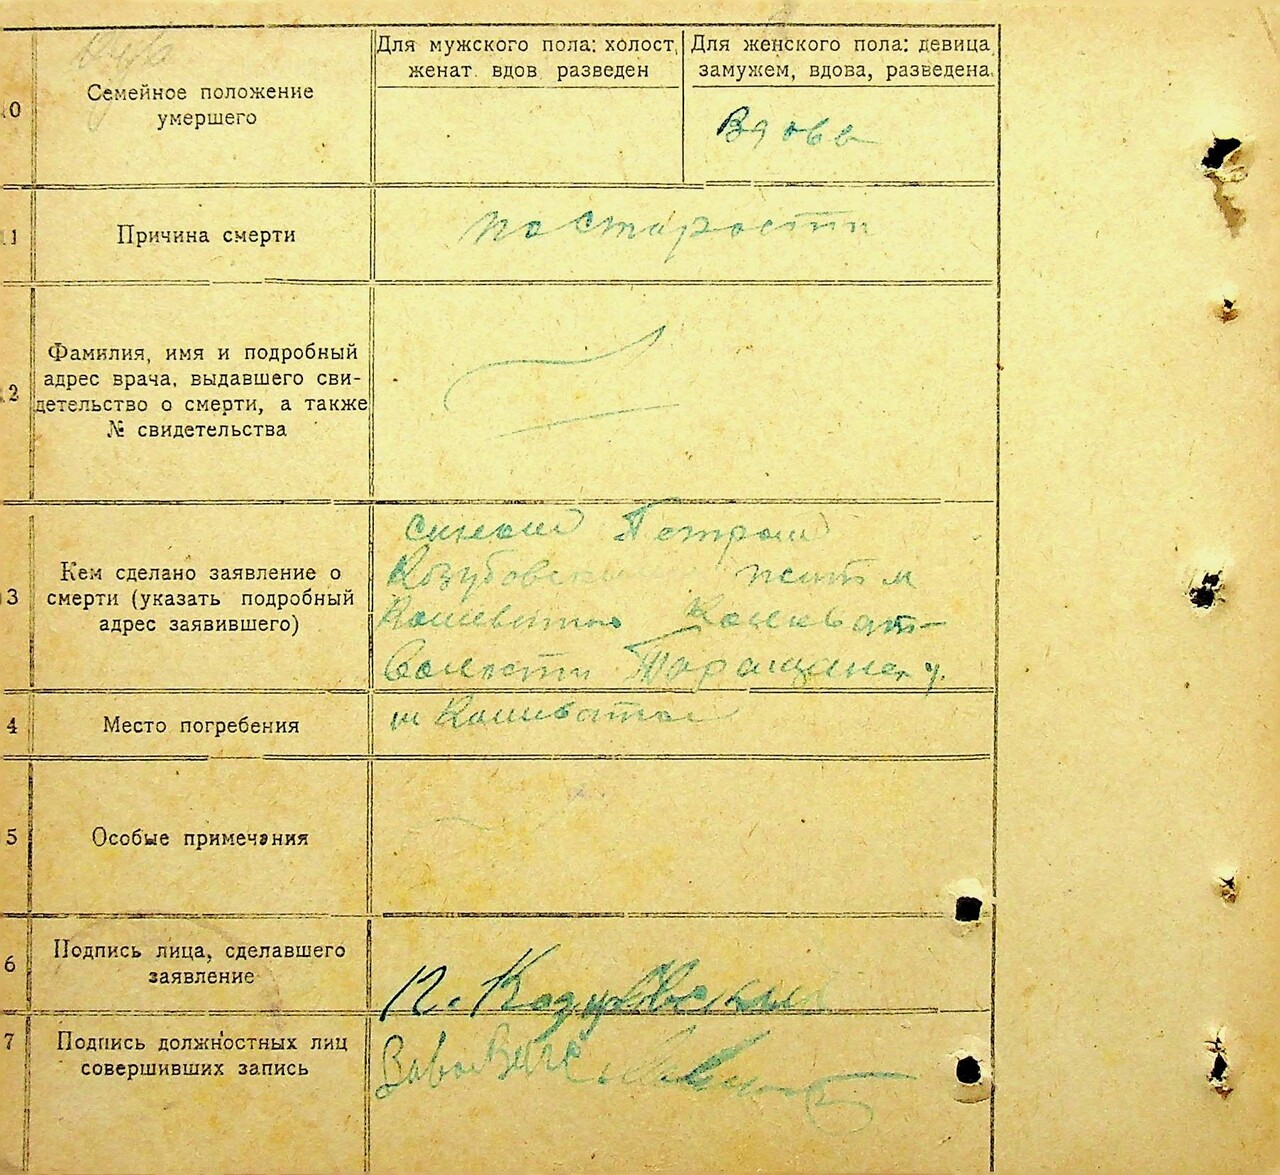 0
Семейное положение
умершего
Для мужского пола: холост,
женат вдов разведен
Для женского пола: девица
замужем, вдова, разведена
Вдова
11
Причина смерти
по старости
2
Фамилия, имя и подробный
адрес врача, выдавшего сви-
детельство о смерти, а также
№ свидетельства
3
Кем сделано заявление о
смерти (указать подробный
адрес заявившего)
сыном Петром
Козубовским
Кошеватой Кошеват-
волости Таращанск. у.
4
Место погребения
м Кошеватое
5
Особые примечания
6
Подпись лица, сделавшего
заявление
П. Козубовский
7
Подпись должностных лиц
совершивших запись